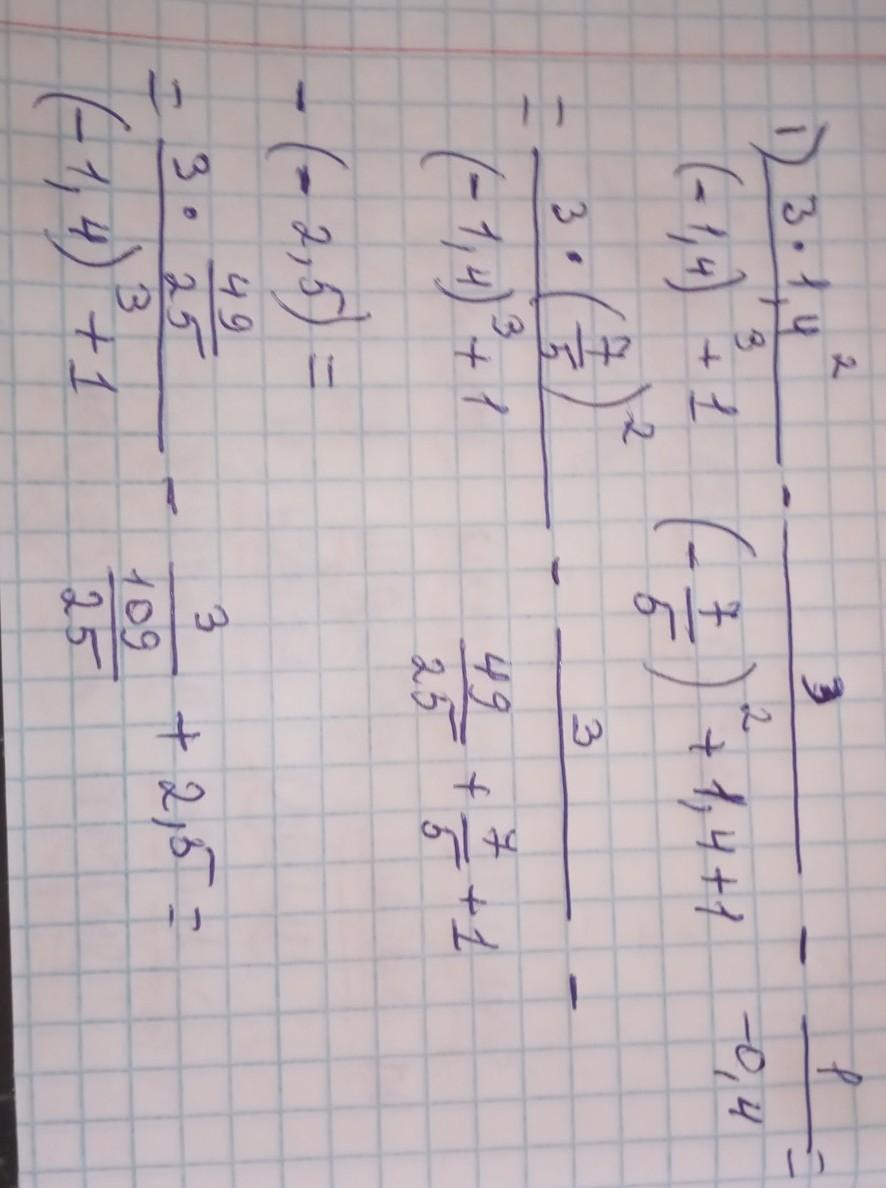 1) (3·1,4²)/((-1,4)³+1) - 3/((-7/5)²+1,4+1) - 1/(-0,4) =
= (3·(7/5)²)/((-1,4)³+1) - 3/(49/25+7/5+1) -
- (-2,5) =
= (3·49/25)/((-1,4)³+1) - 3/(109/25) + 2,5 =